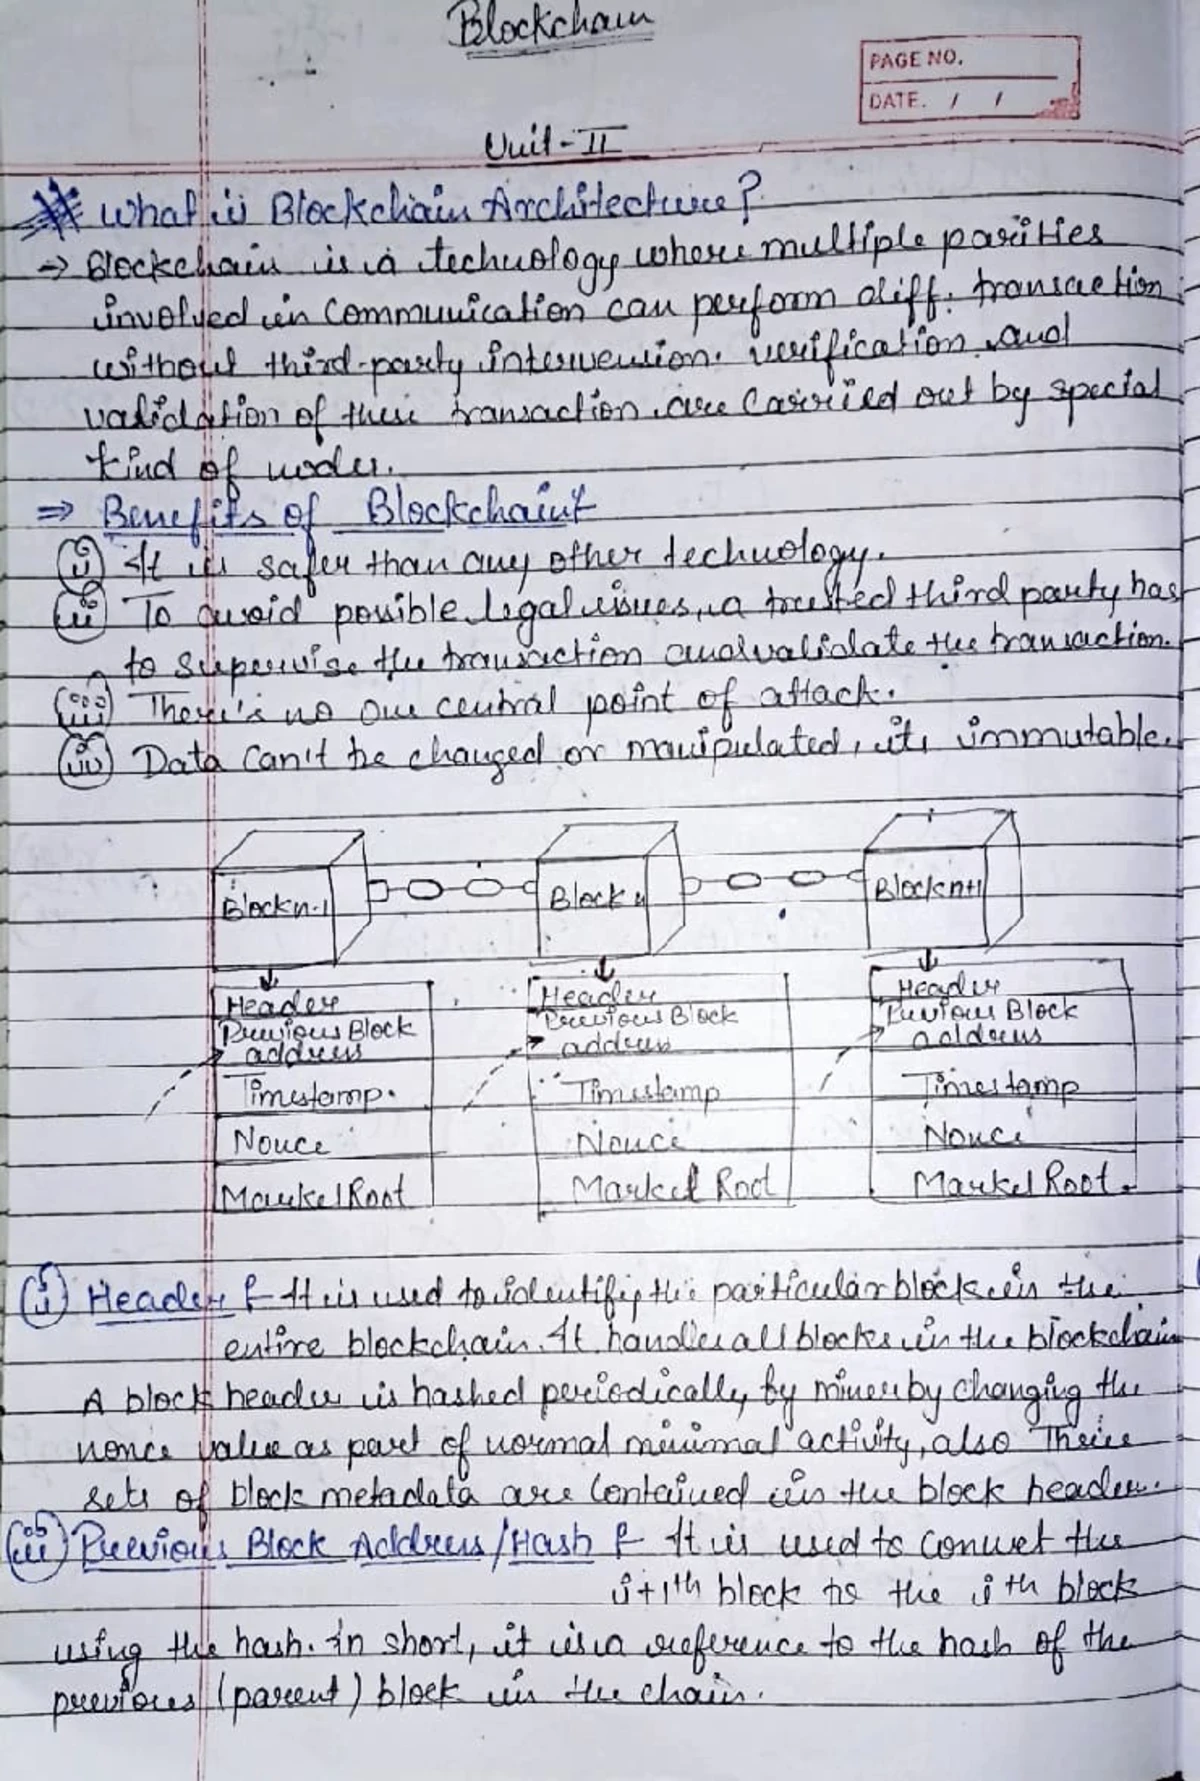 Blockchain
PAGE NO.
DATE. / /
Unit - II
What is Blockchain Architecture?
→ Blockchain is a technology where multiple parities
involved in communication can perform diff. transaction
without third-party intervention. verification and
validation of these transaction are carried out by special
kind of nodes.
⇒ Benefits of Blockchain:
(i) It is safer than any other technology.
(ii) To avoid possible legal issues, a trusted third party has
to supervise the transaction and validate the transaction.
(iii) There's no one central point of attack.
(iv) Data can't be changed or manipulated, it's immutable.
Block n-1 Block n Block n+1
Header Header Header
Previous Block Previous Block Previous Block
address address address
Timestamp. Timestamp Timestamp
Nouce Nouce Nouce
Markel Root Markel Root Markel Root.
(i) Header :- It is used to identify the particular block in the
entire blockchain. It handles all blocks in the blockchain
A block header is hashed periodically by miners by changing the
nonce value as part of normal minimal activity, also Three
sets of block metadata are contained in the block header.
(ii) Previous Block Address/Hash :- It is used to connect the
i+1th block to the ith block
using the hash. In short, it is a reference to the hash of the
previous (parent) block in the chain.